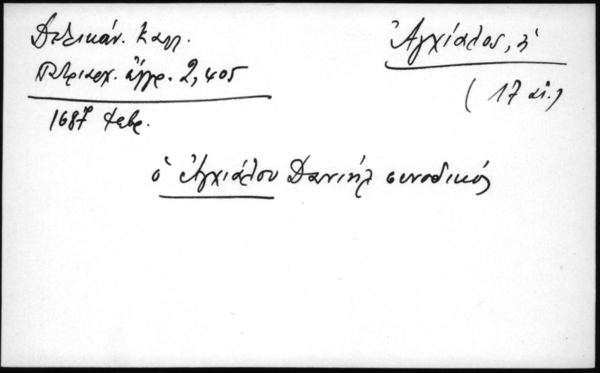 Δελικάν. Καλλ.
Πατριαρχ. ἔγγρ. 2, 405
1687 Φεβρ.
Ἀγχίαλος, ἡ
(17 αἰ.)
ὁ Ἀγχιάλου Δανιὴλ συνοδικός